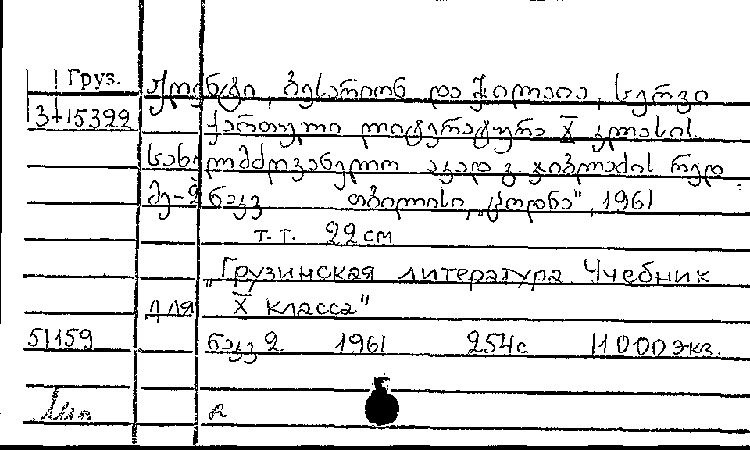 Груз.
ჟღენტი, ბესარიონ და ჭილაია, სერგი
3-15399
ქართული ლიტერატურა X კლასის
სახელმძღვანელო აკად გ. ჯიბლაძის რედ
მე-2 ნაკვ თბილისი, „ცოდნა", 1961
т.т. 22см
„Грузинская литература. Учебник
для X класса"
51159 ნაკვ 2. 1961 254с 11000экз.